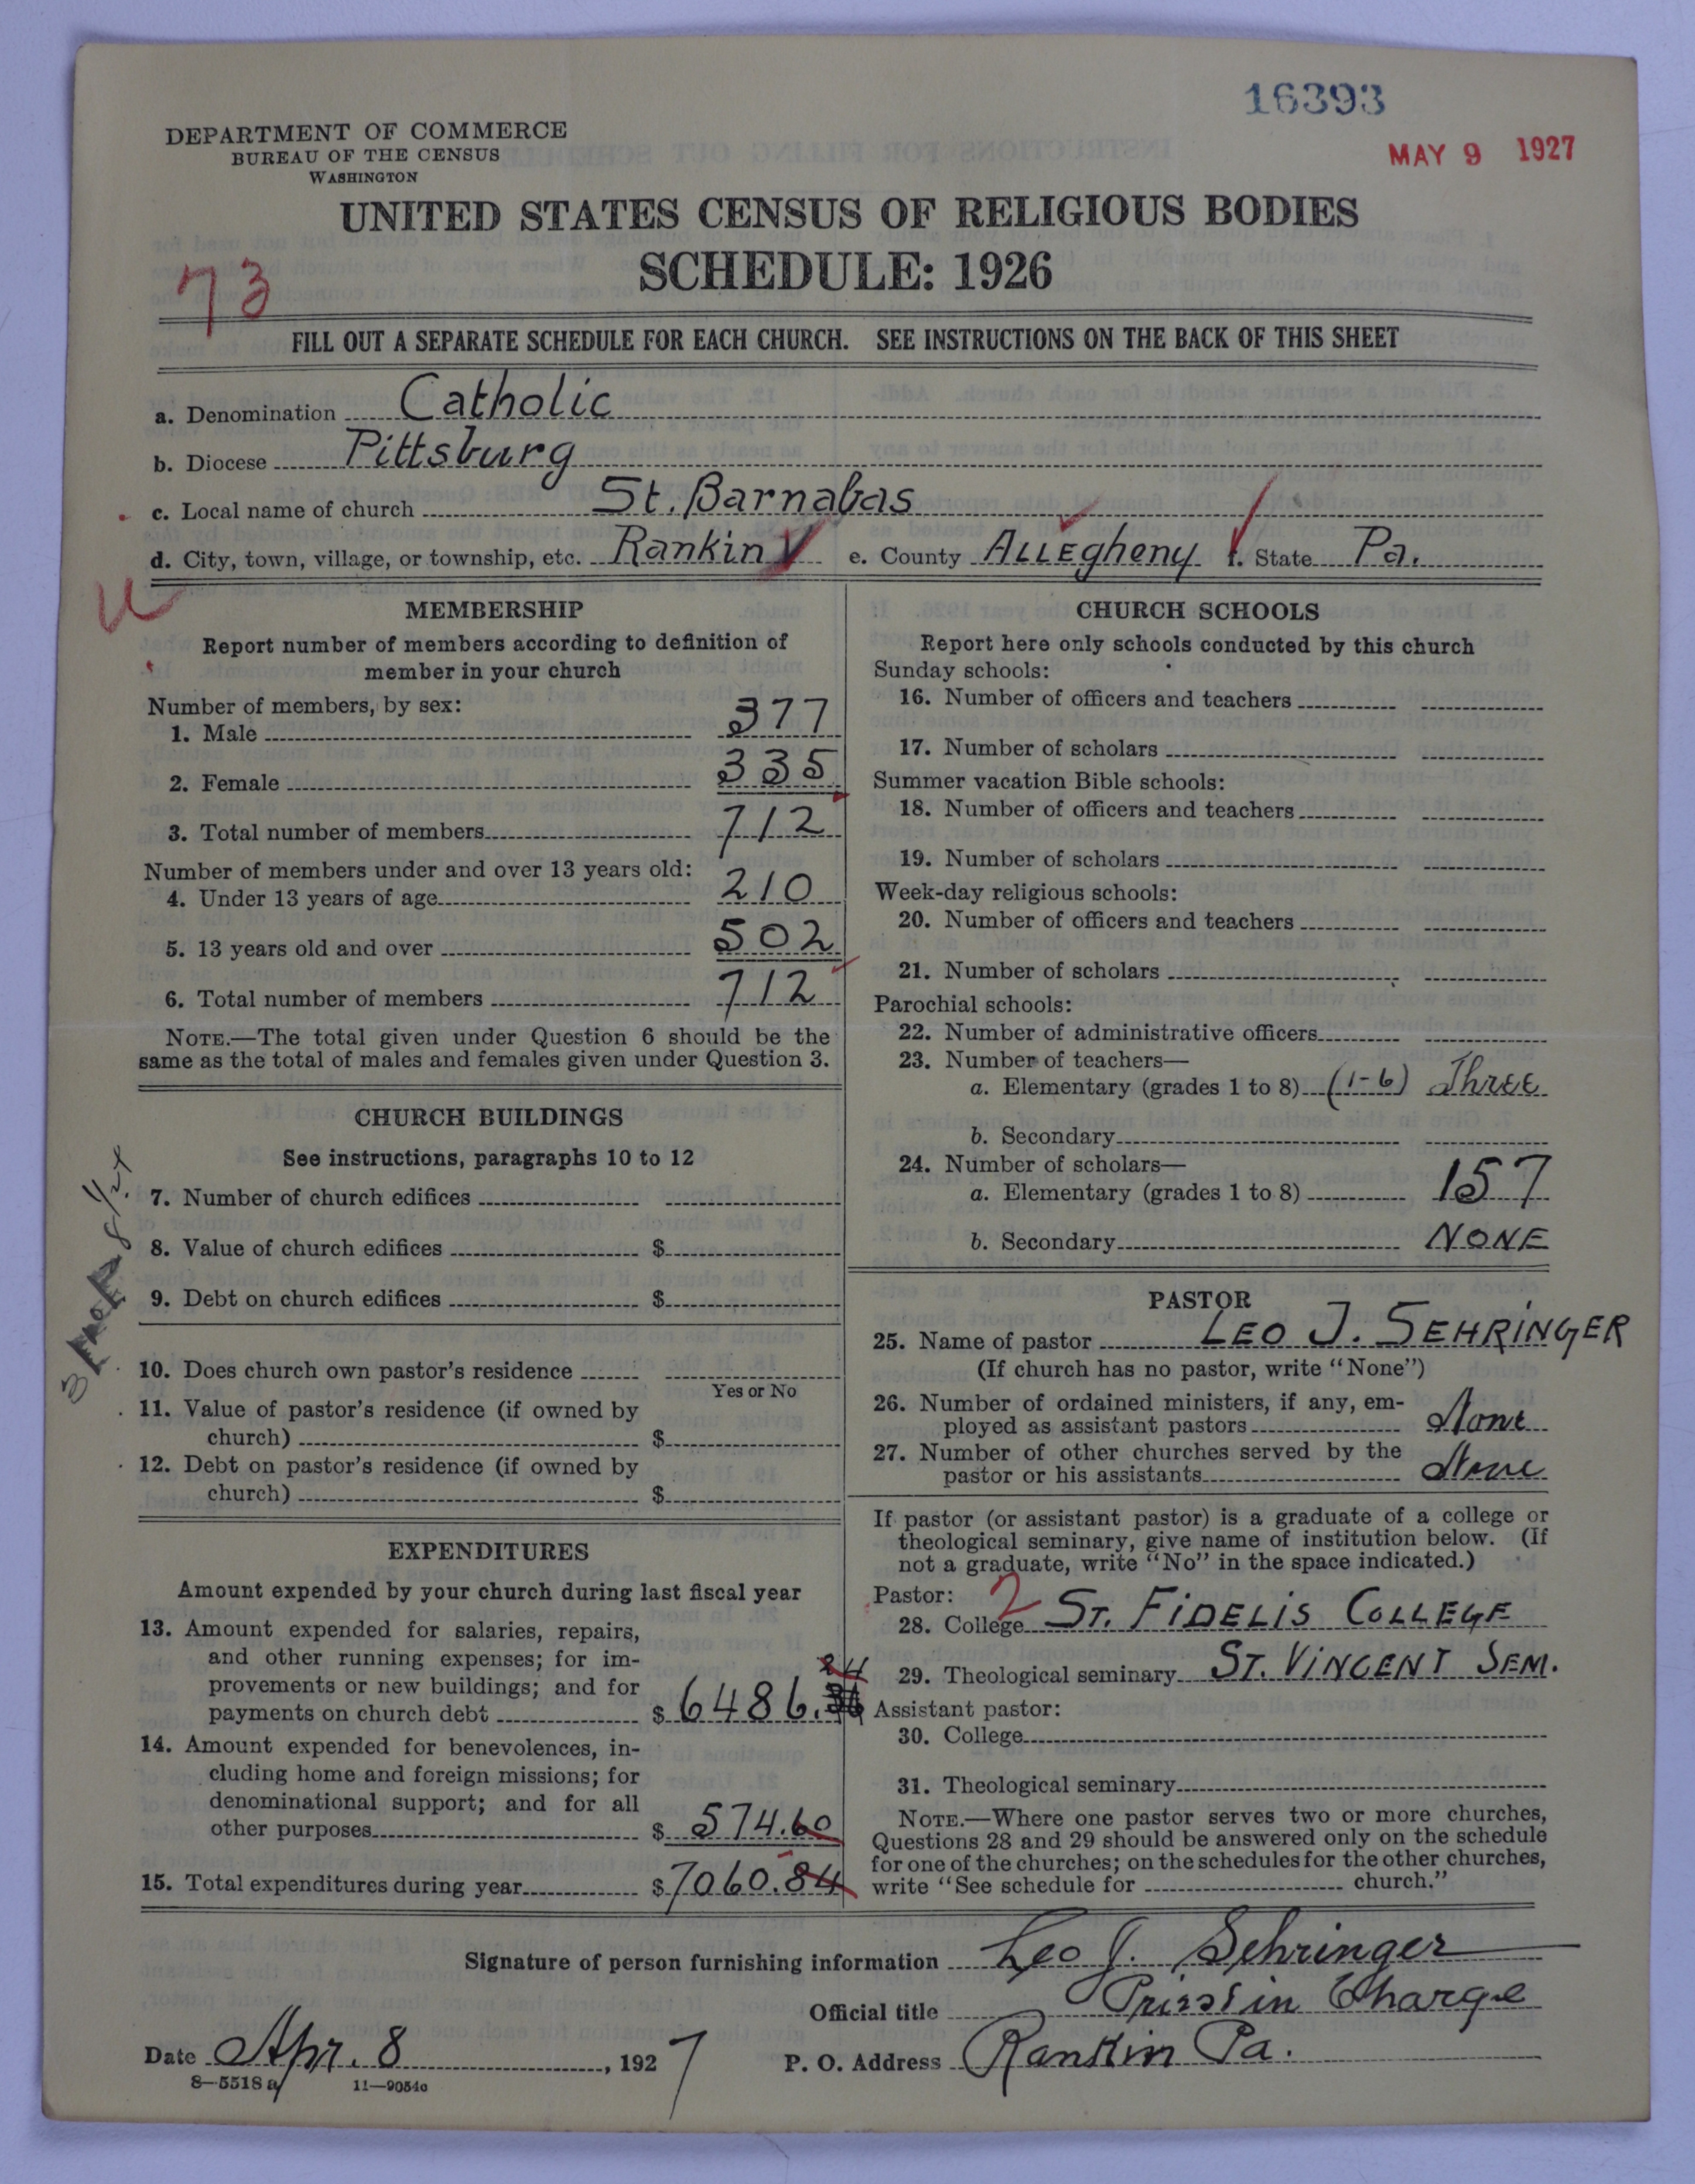 16393
MAY 9 1927
DEPARTMENT OF COMMERCE
BUREAU OF THE CENSUS
WASHINGTON
UNITED STATES CENSUS OF RELIGIOUS BODIES
SCHEDULE: 1926
73
FILL OUT A SEPARATE SCHEDULE FOR EACH CHURCH. SEE INSTRUCTIONS ON THE BACK OF THIS SHEET
a. Denomination Catholic
b. Diocese Pittsburg
c. Local name of church St. Barnabas
d. City, town, village, or township, etc. Rankin e. County Allegheny f. State Pa.
MEMBERSHIP
Report number of members according to definition of
member in your church
Number of members, by sex:
1. Male 377
2. Female 335
3. Total number of members 712
Number of members under and over 13 years old:
4. Under 13 years of age 210
5. 13 years old and over 502
6. Total number of members 712
NOTE.—The total given under Question 6 should be the
same as the total of males and females given under Question 3.
CHURCH BUILDINGS
See instructions, paragraphs 10 to 12
7. Number of church edifices
8. Value of church edifices $
9. Debt on church edifices $
10. Does church own pastor's residence
Yes or No
11. Value of pastor's residence (if owned by
church) $
12. Debt on pastor's residence (if owned by
church) $
EXPENDITURES
Amount expended by your church during last fiscal year
13. Amount expended for salaries, repairs,
and other running expenses; for im-
provements or new buildings; and for
payments on church debt $ 6486.24
14. Amount expended for benevolences, in-
cluding home and foreign missions; for
denominational support; and for all
other purposes $ 574.60
15. Total expenditures during year $ 7060.84
CHURCH SCHOOLS
Report here only schools conducted by this church
Sunday schools:
16. Number of officers and teachers
17. Number of scholars
Summer vacation Bible schools:
18. Number of officers and teachers
19. Number of scholars
Week-day religious schools:
20. Number of officers and teachers
21. Number of scholars
Parochial schools:
22. Number of administrative officers
23. Number of teachers—
a. Elementary (grades 1 to 8) (1-6) Three
b. Secondary
24. Number of scholars—
a. Elementary (grades 1 to 8) 157
b. Secondary NONE
PASTOR
25. Name of pastor LEO J. SEHRINGER
(If church has no pastor, write "None")
26. Number of ordained ministers, if any, em-
ployed as assistant pastors None
27. Number of other churches served by the
pastor or his assistants None
If pastor (or assistant pastor) is a graduate of a college or
theological seminary, give name of institution below. (If
not a graduate, write "No" in the space indicated.)
Pastor: 2
28. College ST. FIDELIS COLLEGE
29. Theological seminary ST. VINCENT SEM.
Assistant pastor:
30. College
31. Theological seminary
NOTE.—Where one pastor serves two or more churches,
Questions 28 and 29 should be answered only on the schedule
for one of the churches; on the schedules for the other churches,
write "See schedule for church."
Signature of person furnishing information Leo J. Sehringer
Official title Priest in Charge
Date Apr. 8, 1927 P. O. Address Rankin Pa.
8—5518 a 11—9054c